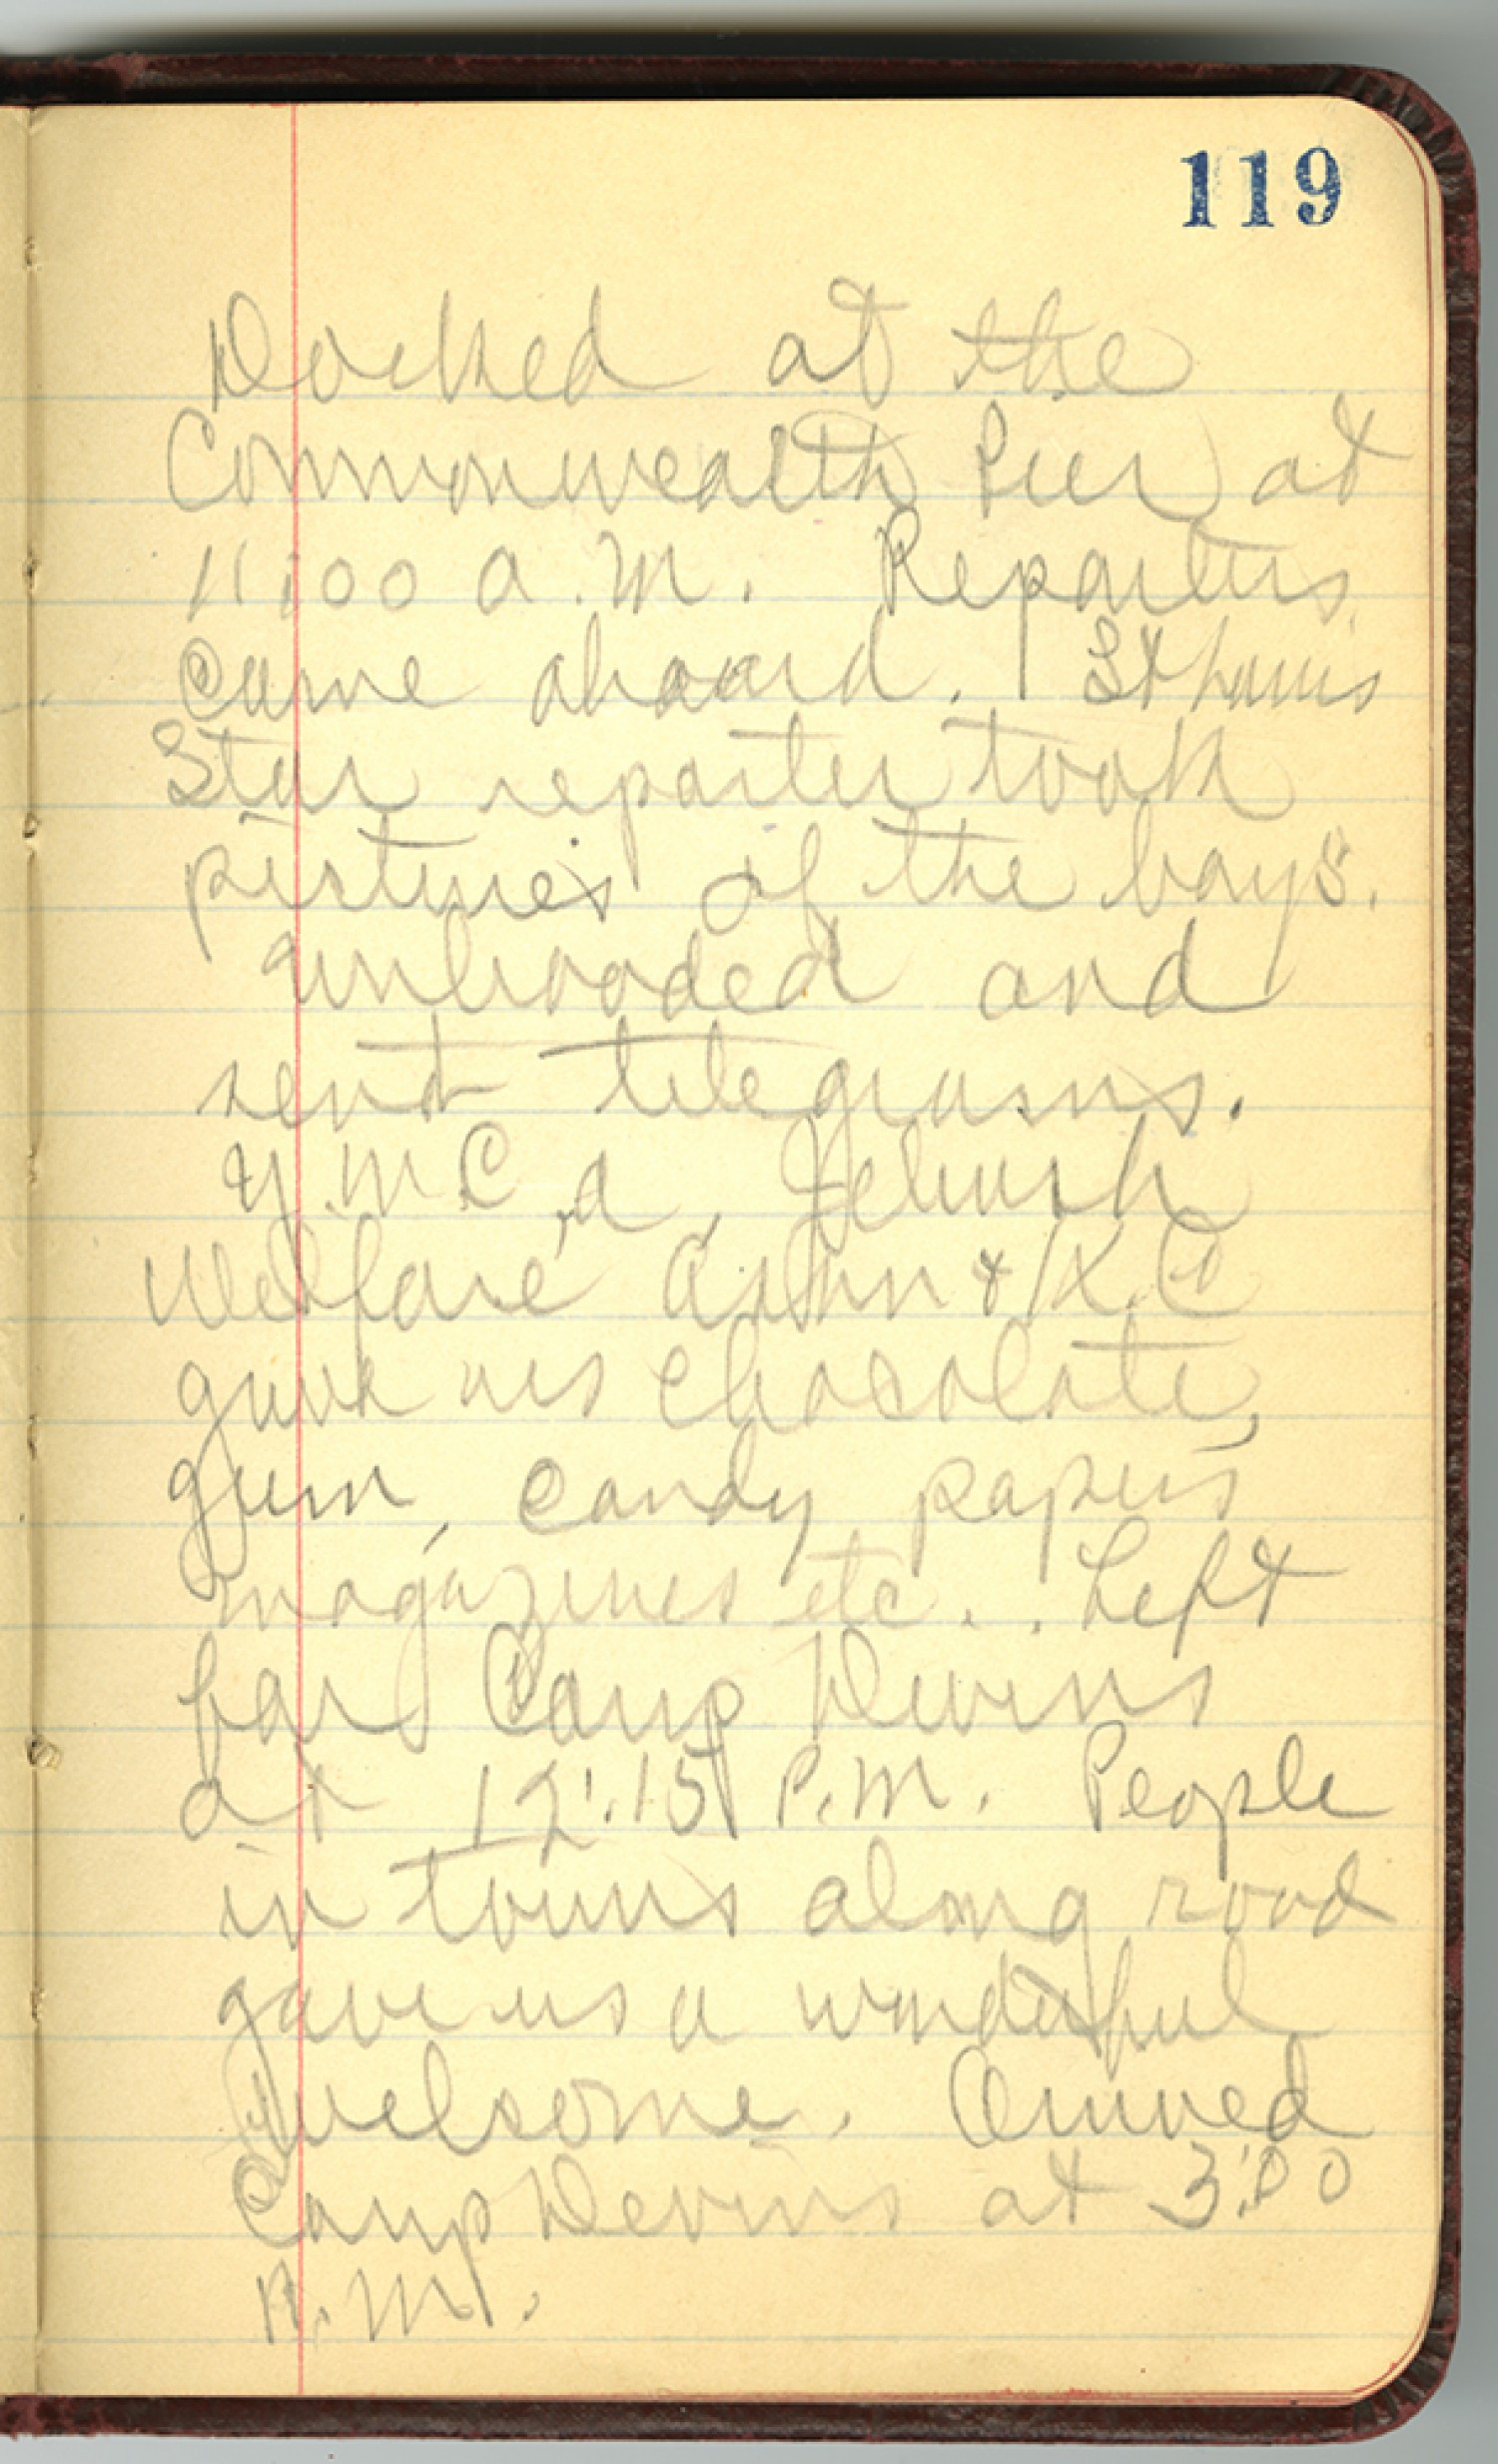 119
Docked at the
Commonwealth Pier at
11:00 a.m. Reporters
came aboard. St Louis
Star reporter took
pictures of the boys.
and
sent telegrams.
Y.M.C.A, Jewish
Welfare Ass'nn & K.C
gave us chocolate,
gum, candy papers
magazines etc.. Left
for Camp Devens
at 12:15 P.M. People
in towns along road
gave us a wonderful
welcome. Arrived
Camp Devens at 3:00
P.M.